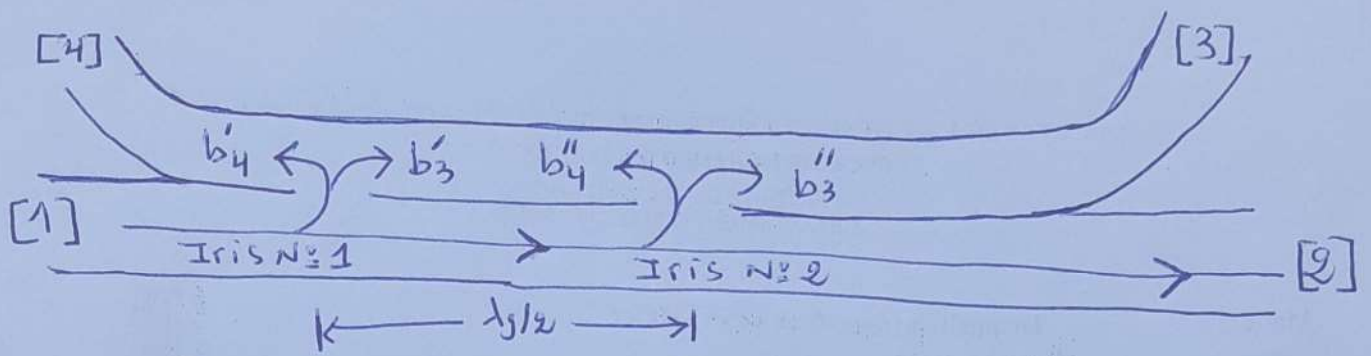 [4] [3]
b'4 b'3 b"4 b"3
[1]
Iris Nº1 Iris Nº2 [2]
λg/2